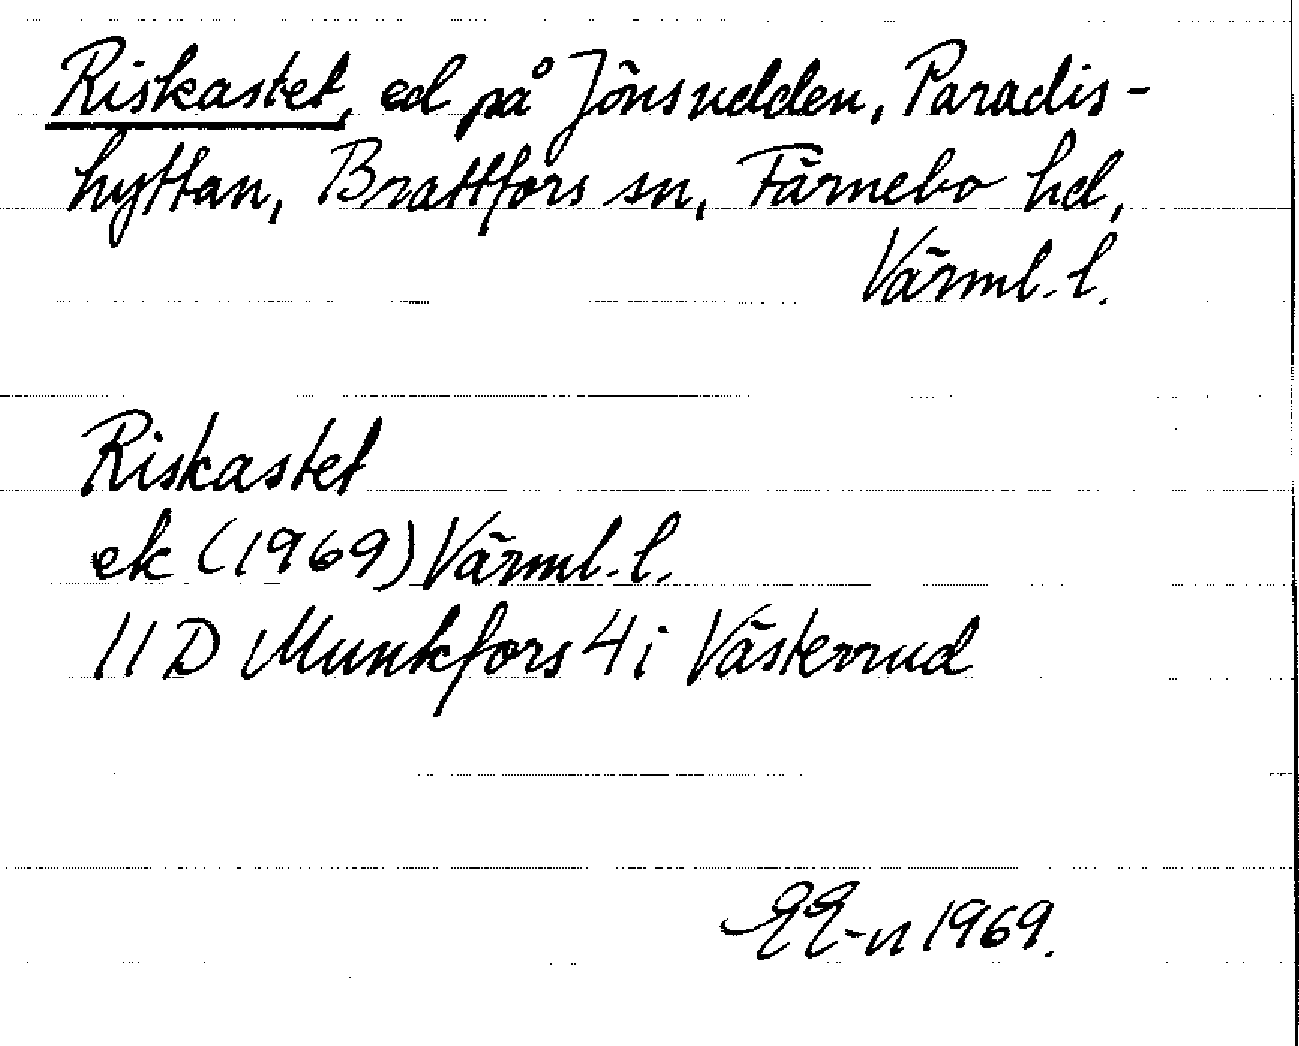 Riskastet, ed på Jönsudden, Paradis-
hyttan, Brattfors sn, Färnebo hd,
Värml. l.
Riskastet
ek (1969) Värml. l.
11 D Munkfors 4 i Västerrud
EE-n 1969.